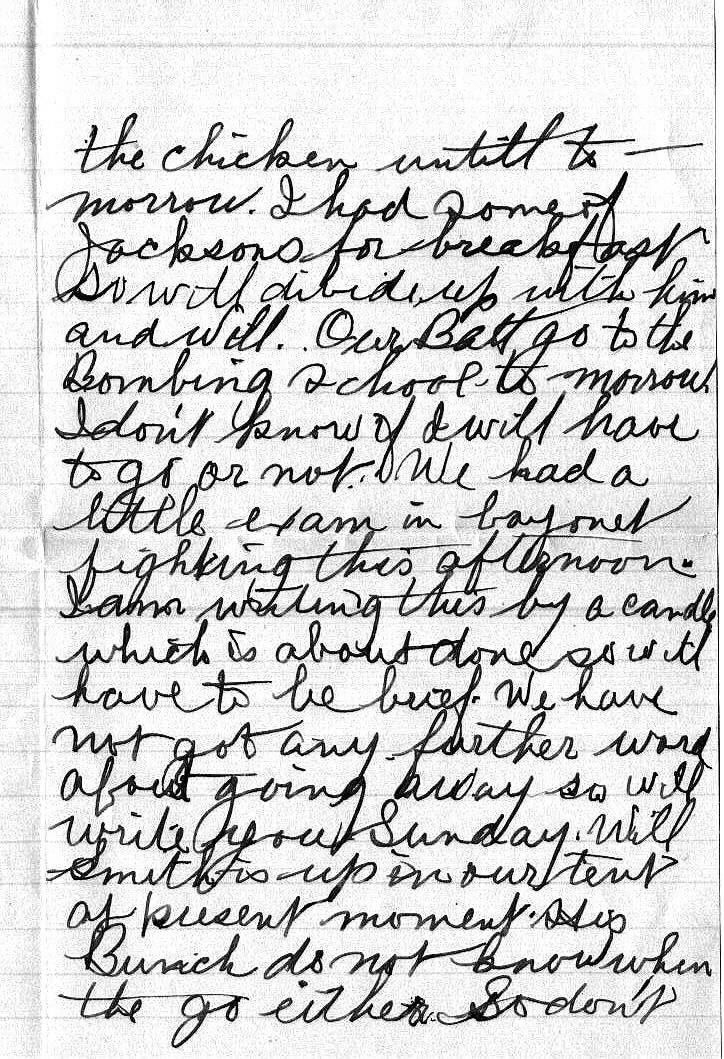 the chicken untill to —
morrow. I had some of
Jacksons for breakfast
So will divide up with him
and Will. Our Batt go to the
Bombing School to-morrow.
I don't know if I will have
to go or not. We had a
little exam in bayonet
fighting this afternoon.
I am writing this by a candle
which is about done so will
have to be brief. We have
not got any further word
about going away so will
write you Sunday. Will
Smith is up in our tent
at present moment. His
Bunch do not know when
the go either. So don't